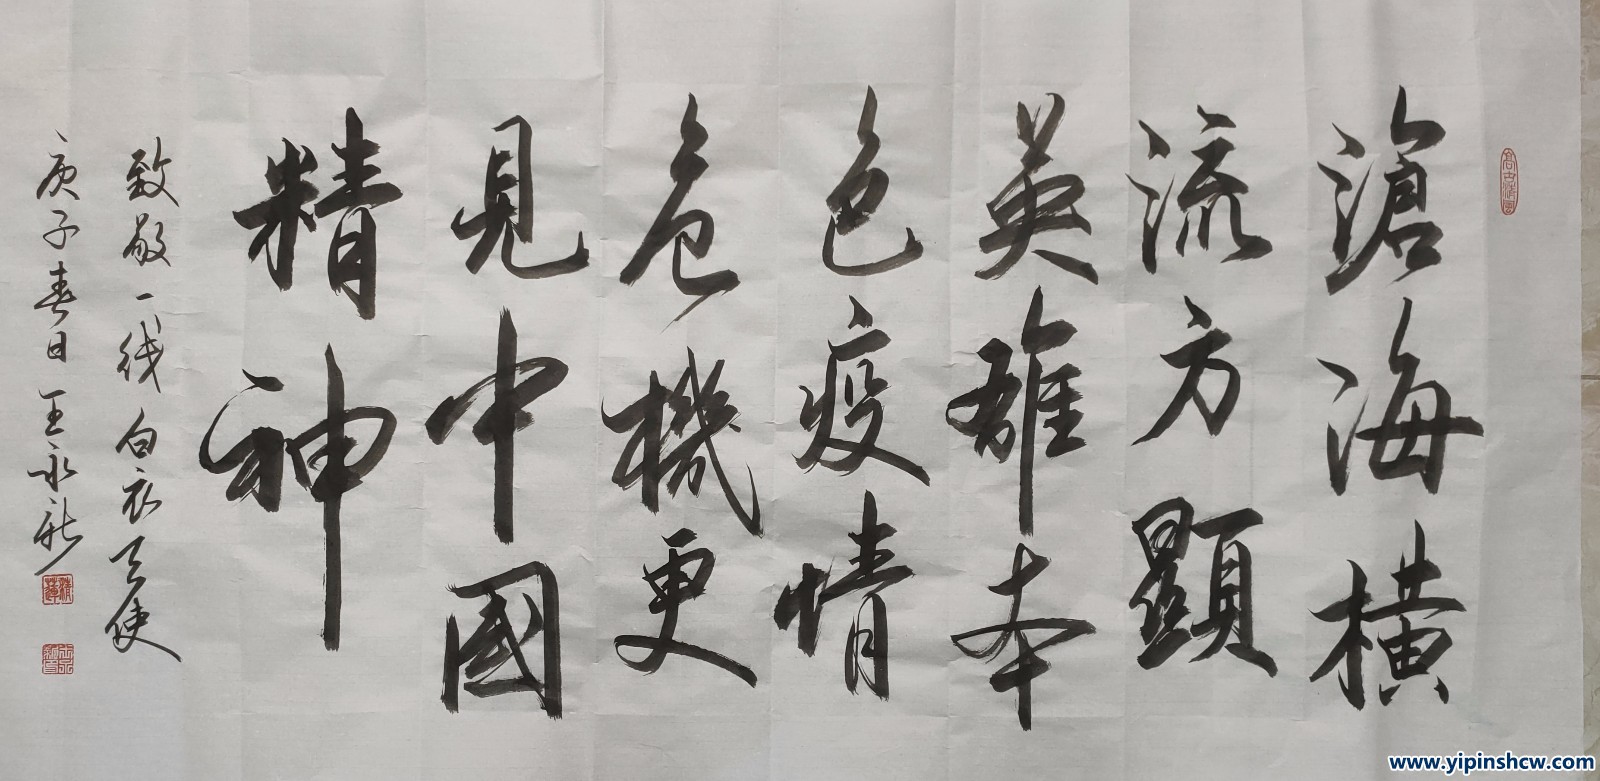 滄海橫
流方顯
英雄本
色疫情
危機更
見中國
精神
致敬一线白衣天使
庚子春日王永新
www.yipinshcw.com